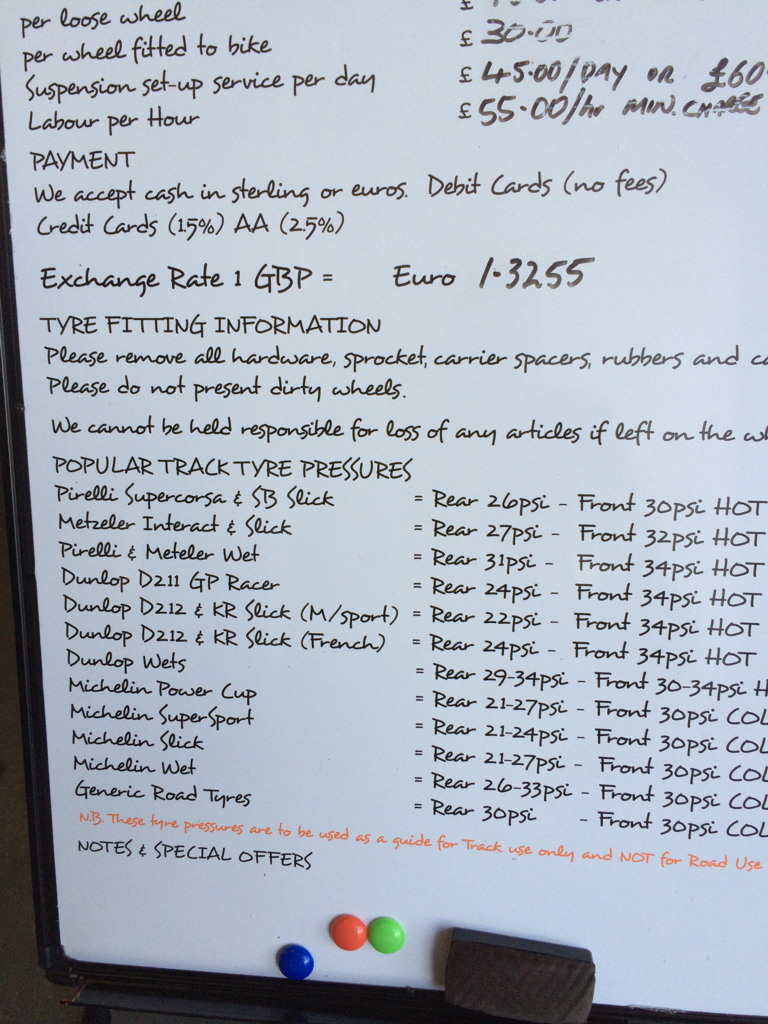 per loose wheel £
per wheel fitted to bike £ 30.00
Suspension set-up service per day £ 45.00/DAY OR £60
Labour per Hour £ 55.00/hr MIN.
PAYMENT
We accept cash in sterling or euros. Debit Cards (no fees)
Credit Cards (1.5%) AA (2.5%)
Exchange Rate 1 GBP = Euro 1.3255
TYRE FITTING INFORMATION
Please remove all hardware, sprocket, carrier spacers, rubbers and
Please do not present dirty wheels.
We cannot be held responsible for loss of any articles if left on the
POPULAR TRACK TYRE PRESSURES
Pirelli Supercorsa & SB Slick = Rear 26psi - Front 30psi HOT
Metzeler Interact & Slick = Rear 27psi - Front 32psi HOT
Pirelli & Meteler Wet = Rear 31psi - Front 34psi HOT
Dunlop D211 GP Racer = Rear 24psi - Front 34psi HOT
Dunlop D212 & KR Slick (M/sport) = Rear 22psi - Front 34psi HOT
Dunlop D212 & KR Slick (French) = Rear 24psi - Front 34psi HOT
Dunlop Wets = Rear 29-34psi - Front 30-34psi H
Michelin Power Cup = Rear 21-27psi - Front 30psi COL
Michelin SuperSport = Rear 21-24psi - Front 30psi COL
Michelin Slick = Rear 21-27psi - Front 30psi COL
Michelin Wet = Rear 26-33psi - Front 30psi COL
Generic Road Tyres = Rear 30psi - Front 30psi COL
N.B. These tyre pressures are to be used as a guide for Track use only and NOT for Road Use
NOTES & SPECIAL OFFERS